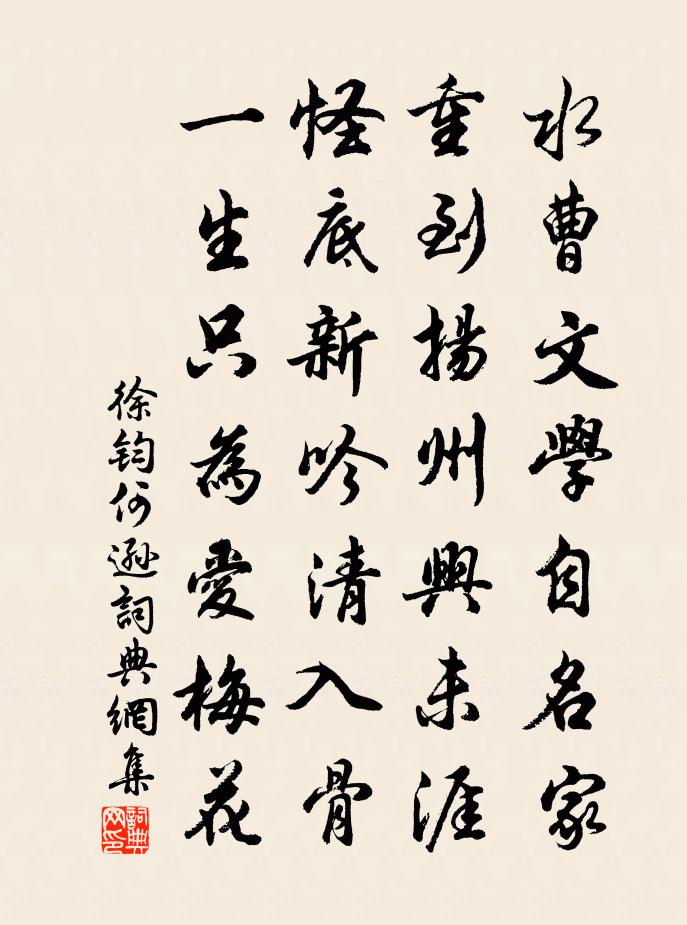 水曹文學自名家
重到揚州興未涯
怪底新吟清入骨
一生只為愛梅花
徐鈞何遜詞典網集
詞典网印